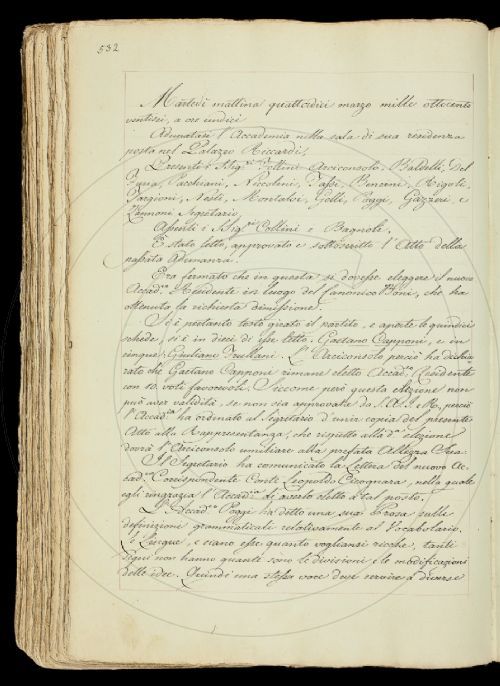 532
Martedì mattina quattordici marzo mille ottocento
ventisei, a ore undici
Adunatasi l'Accademia nella sala di sua residenza
posta nel Palazzo Riccardi,
Presenti i Sigri Arciconsolo, Baldelli, Del
Furia, Pacchiani, Niccolini, Tassi, Bencini, Rigoli,
Targioni, Nesti, Montalvi, Gelli, Poggi, Gazzeri e
Zannoni Segretario.
Assenti i Sigri Collini e Bagnoli.
È stato letto, approvato e sottoscritto l'Atto della
passata Adunanza.
Era fermato che in questa si dovesse eleggere il nuovo
Accadco Residente in luogo del Canonico Boni, che ha
ottenuta la richiesta dimissione.
Si è pertanto tosto girato il partito, e aperte le quindici
schede, si è in dieci di esse letto, Gaetano Capponi, e in
cinque, Giuliano Frullani. L'Arciconsolo perciò ha dichia
rato che Gaetano Capponi rimane eletto Accadco Residente
con 10 voti favorevoli. Siccome però questa elezione non
può aver validità, se non sia approvata da S. A. I. e R., perciò
l'Accadia ha ordinato al Segretario d'unir copia del presente
Atto alla Rappresentanza, che rispetto alla da elezione
dovrà l'Arciconsolo umiliare alla prefata Altezza Sua.
Il Segretario ha comunicato la Lettera del nuovo Ac-
cadco Corrispondente Conte Leopoldo Cicognara, nella quale
egli ringrazia l'Accadia di averlo eletto a tal posto.
L'Accadco Poggi ha detto una sua Prosa sulle
definizioni grammaticali relativamente al Vocabolario.
Le Lingue, e siano esse quanto vogliansi ricche, tanti
segni non hanno quante sono le divisioni e le modificazioni
delle idee. Quindi una stessa voce deve servire a diverse